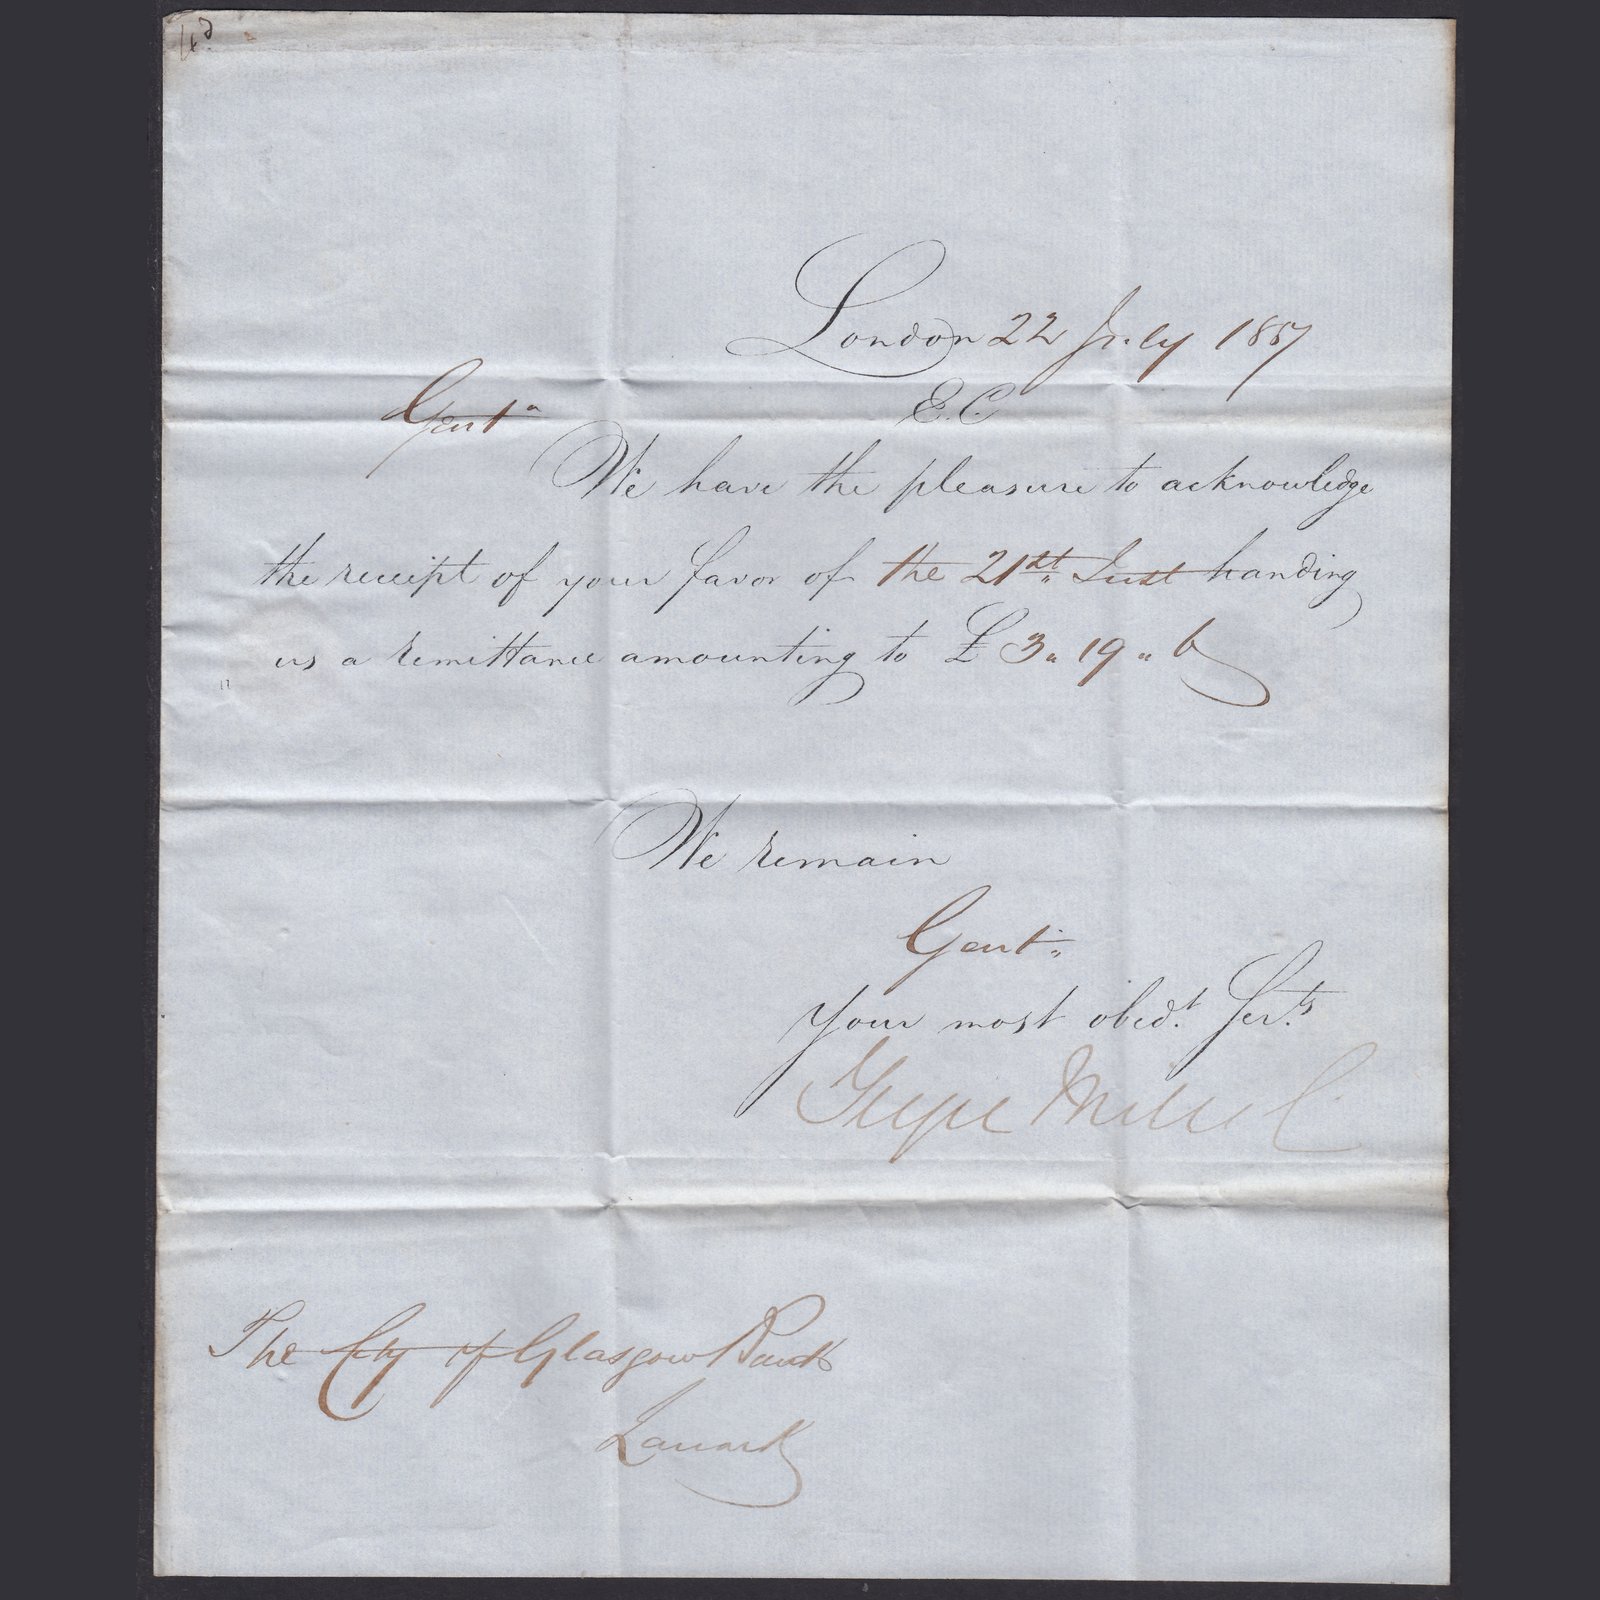 London 22 July 1857
E.C.
Gent̅ⁿ
We have the pleasure to acknowledge
the receipt of your favor of the 21st Inst handing
us a remittance amounting to £ 3 " 19 " 6
We remain
Gent "
Your most obedt. Servts.
The City of Glasgow Bank
Lanark